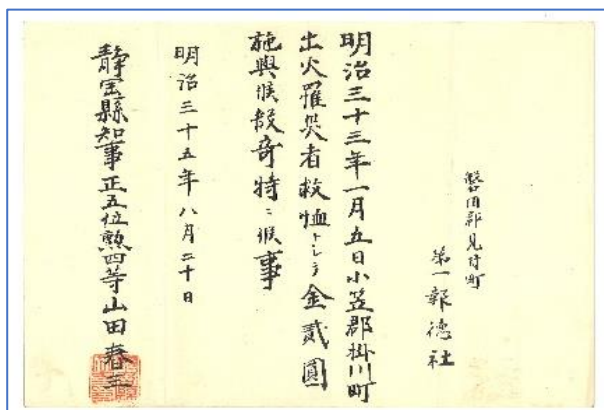 磐田郡見付町
第一報徳社
明治三十三年一月五日小笠郡掛川町
出火罹災者救恤トシテ金貳圓
施與候段奇特ニ候事
明治三十五年八月二十日
静岡縣知事正五位勲四等山田春三